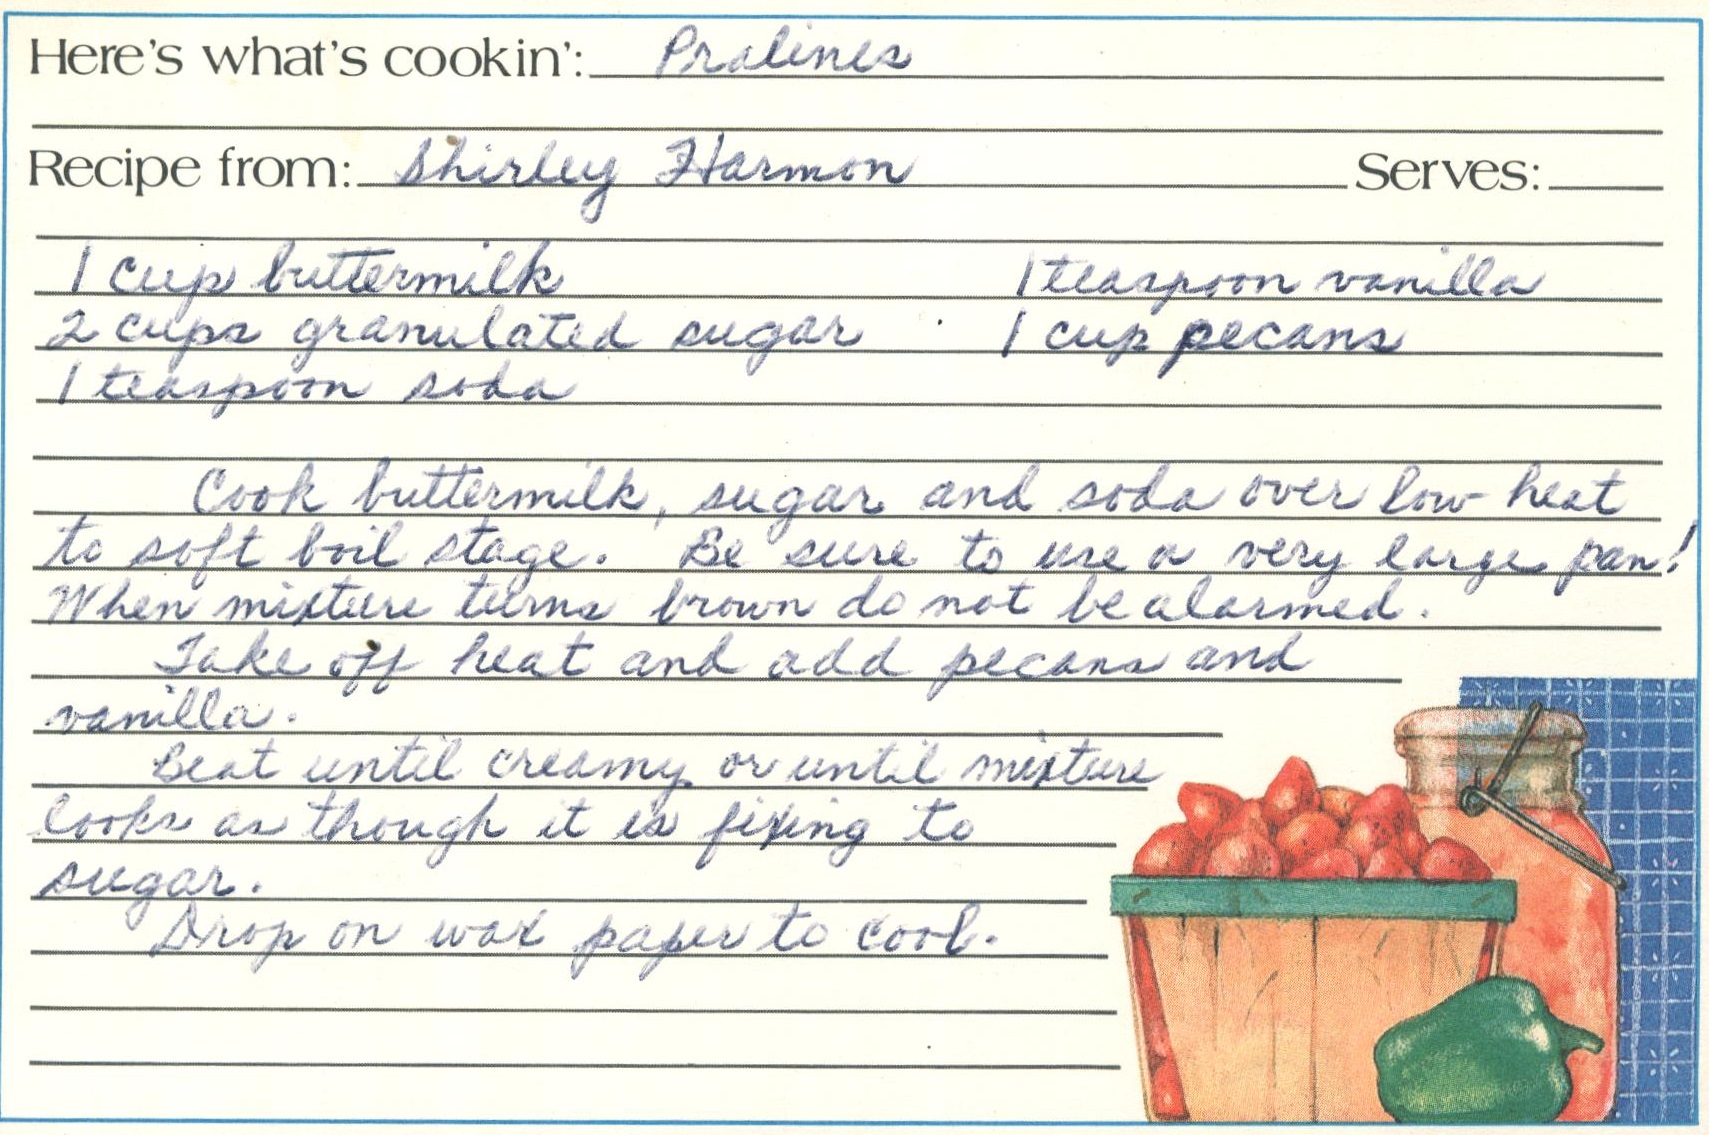 Here's what's cookin': Pralines
Recipe from: Shirley Harmon Serves:
1 cup buttermilk 1 teaspoon vanilla
2 cups granulated sugar 1 cup pecans
1 teaspoon soda
Cook buttermilk, sugar and soda over low heat
to soft boil stage. Be sure to use a very large pan!
When mixture turns brown do not be alarmed.
Take off heat and add pecans and
vanilla.
Beat until creamy or until mixture
looks as though it is fixing to
sugar.
Drop on wax paper to cool.